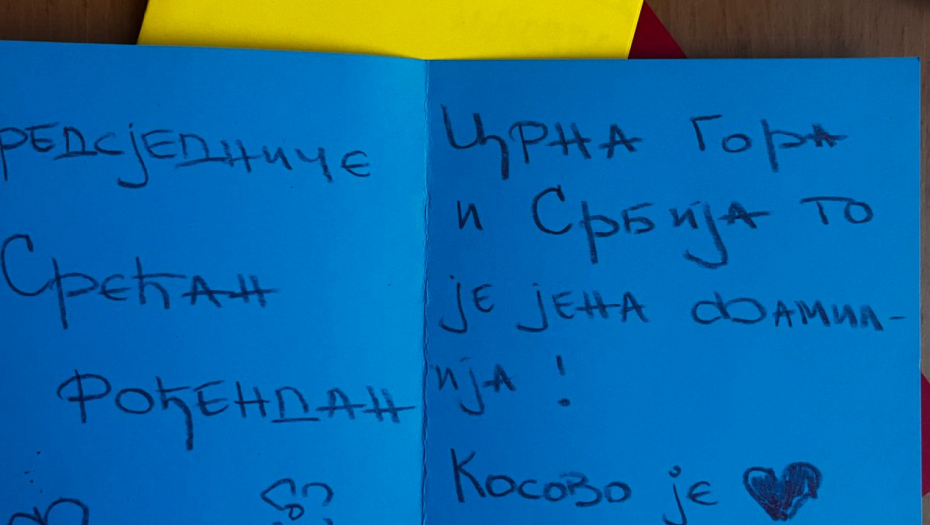 РЕДСЈЕДНИЧЕ
СРЕЋАН
ФОЂЕНДАН
ЦРНА ГОРА
И СРБИЈА ТО
ЈЕ ЈЕНА ФАМИЛ-
ИЈА!
КОСОВО ЈЕ